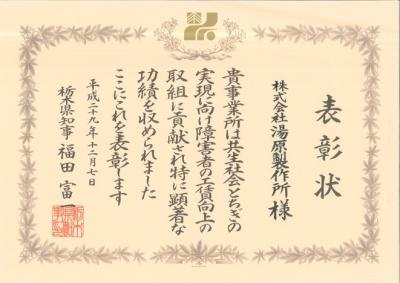 表彰状
株式会社湯原製作所様
貴事業所は共生社会とちぎの
実現に向け障害者の工賃向上の
取組に貢献され特に顕著な
功績を収められました
ここにこれを表彰します
平成二十九年十二月七日
栃木県知事 福田富一